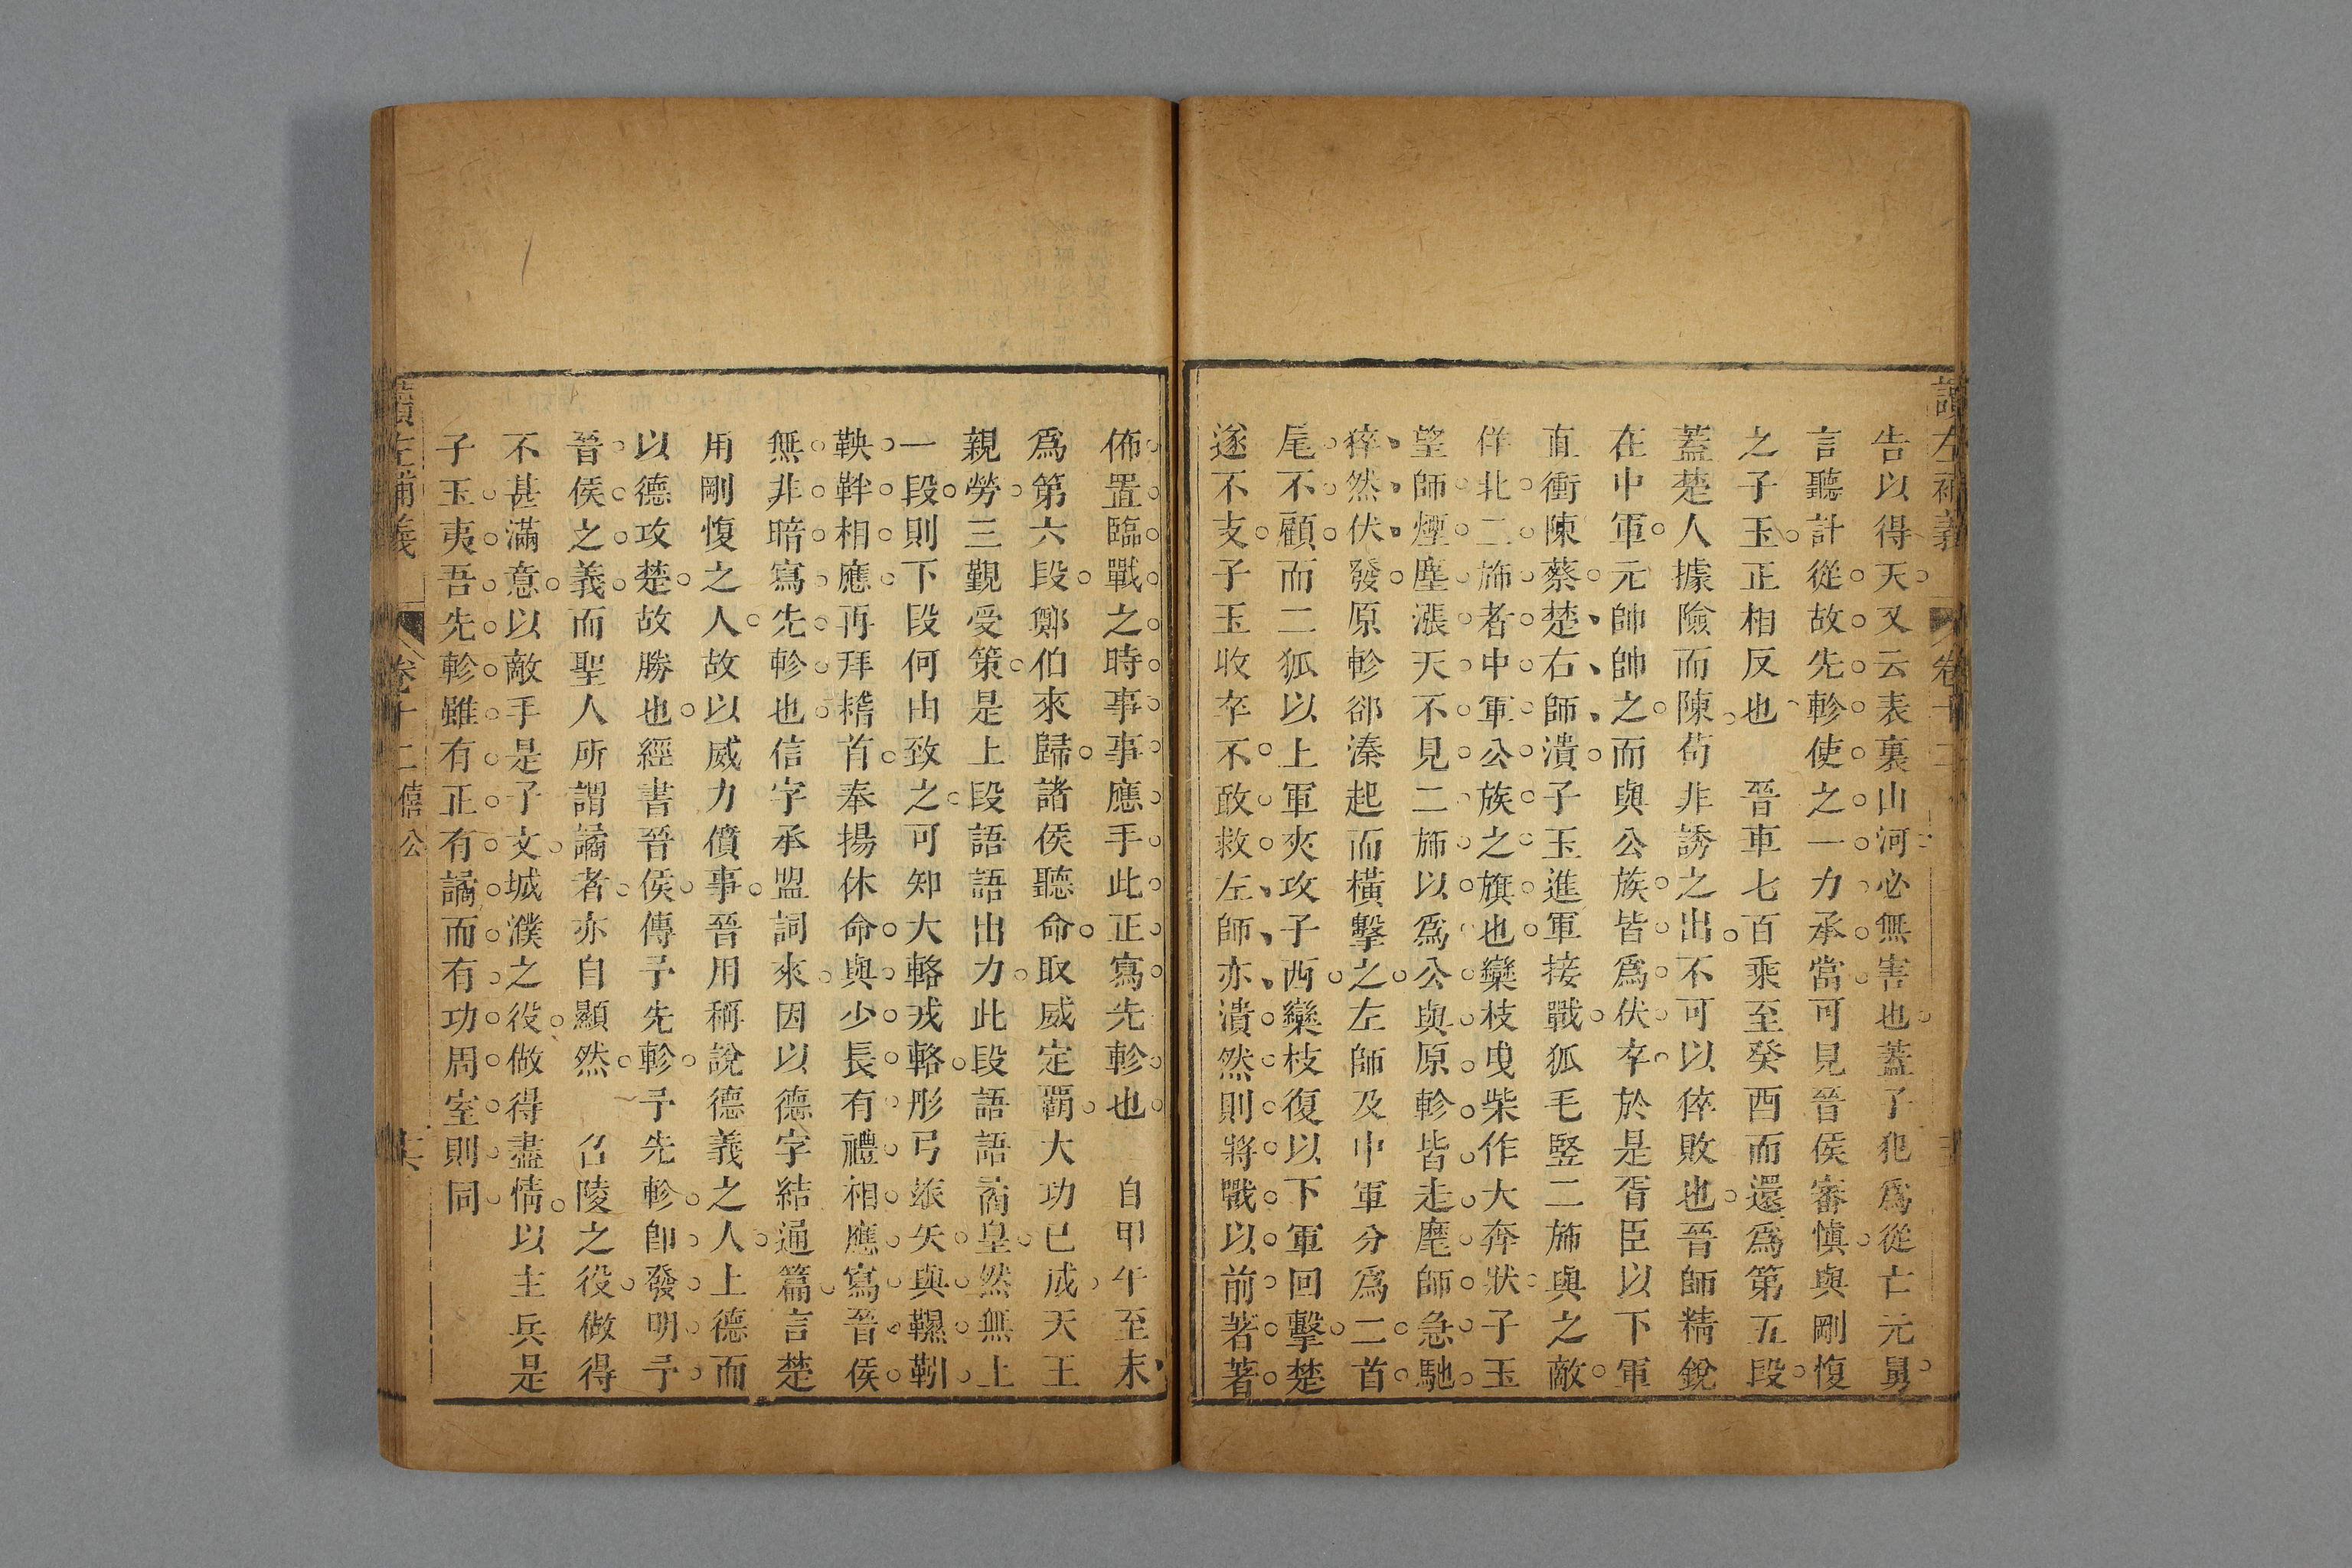 讀左補義 卷十二
告以得天又云表裏山河必無害也蓋子犯爲從亡元舅
言聽計從故先軫使之一力承當可見晉侯審愼與剛愎
之子玉正相反也 晉車七百乘至癸酉而還爲第五段
蓋楚人據險而陳苟非誘之出不可以猝敗也晉師精銳
在中軍元帥帥之而與公族皆爲伏卒於是胥臣以下軍
直衝陳蔡楚右師潰子玉進軍接戰狐毛竪二斾與之敵
佯北二斾者中軍公族之旗也欒枝曳柴作大奔狀子玉
望師煙塵漲天不見二斾以爲公與原軫皆走麾師急馳
猝然伏發原軫郤溱起而橫擊之左師及中軍分爲二首
尾不顧而二狐以上軍夾攻子西欒枝復以下軍回擊楚
遂不支子玉收卒不敢救左師亦潰然則將戰以前著著
佈置臨戰之時事事應手此正寫先軫也 自甲午至末
爲第六段鄭伯來歸諸侯聽命取威定霸大功已成天王
親勞三覲受策是上段語語出力此段語語矞皇然無上
一段則下段何由致之可知大輅戎輅彤弓玈矢與韅靷
鞅靽相應再拜稽首奉揚休命與少長有禮相應寫晉侯
無非暗寫先軫也信字承盟詞來因以德字結通篇言楚
用剛愎之人故以威力僨事晉用稱說德義之人上德而
以德攻楚故勝也經書晉侯傳予先軫予先軫卽發明予
晉侯之義而聖人所謂譎者亦自顯然 召陵之役做得
不甚滿意以敵手是子文城濮之役做得盡情以主兵是
子玉夷吾先軫雖有正有譎而有功周室則同
讀左補義 卷十二 僖公